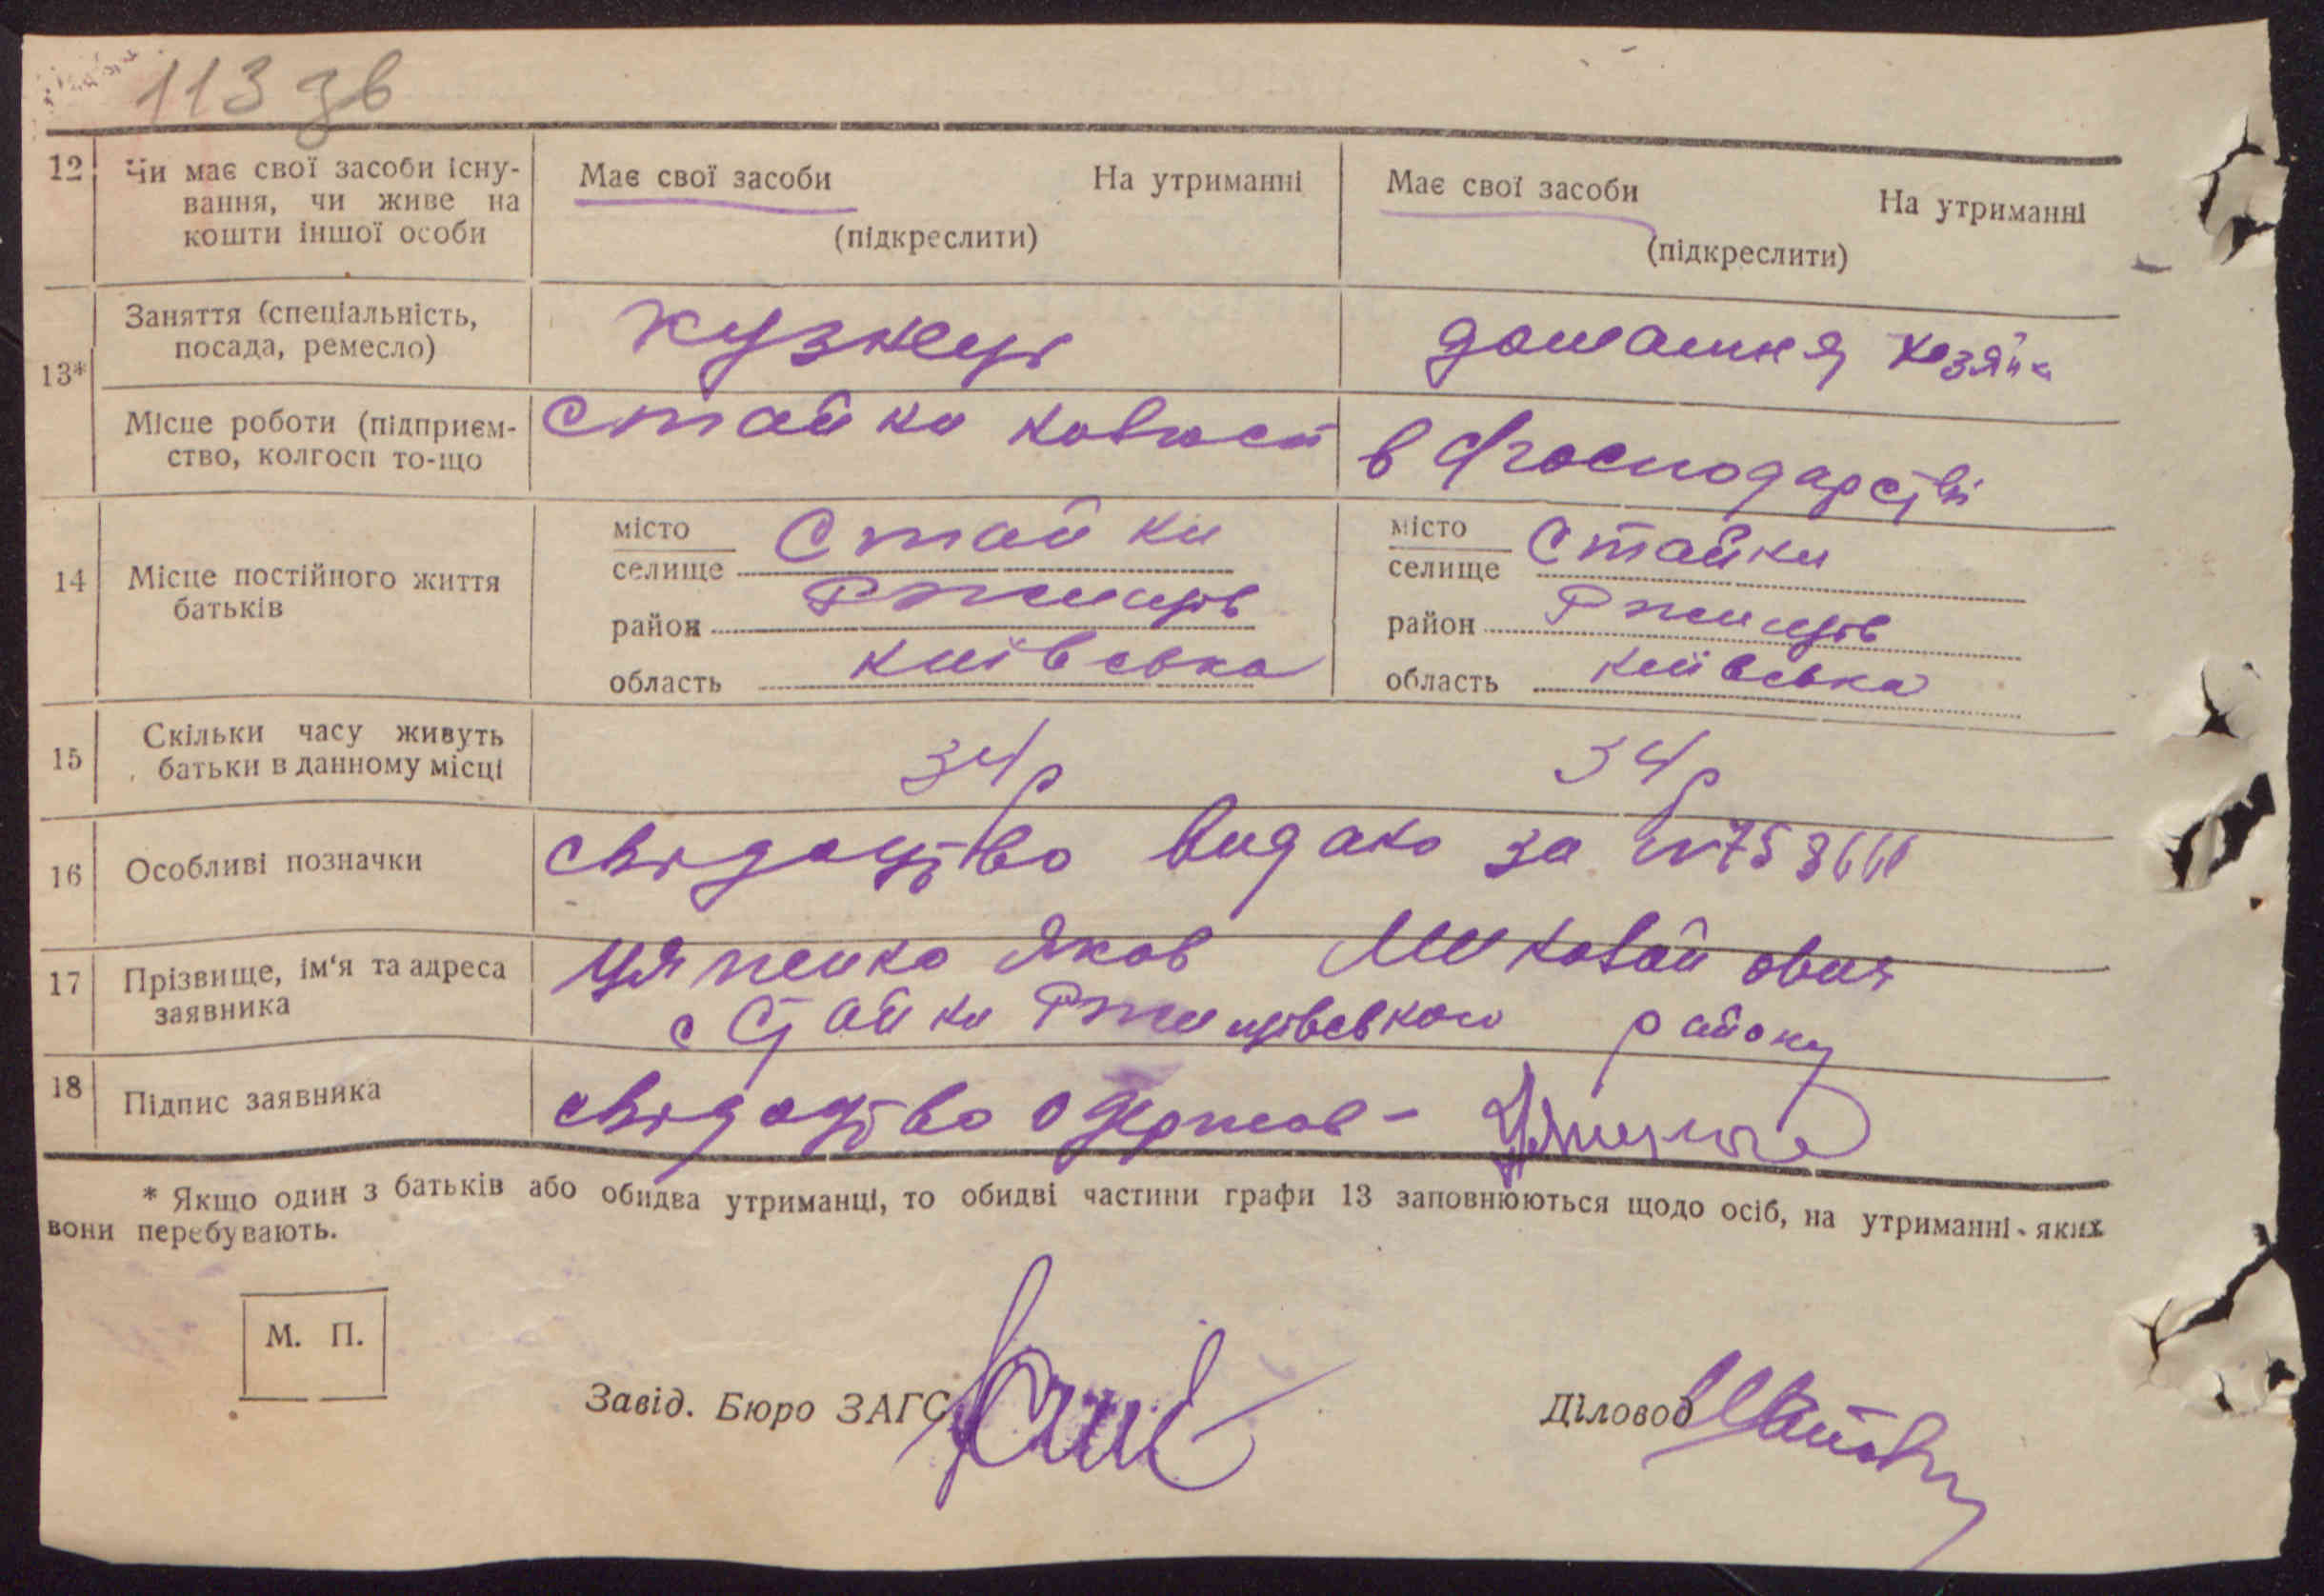 113 зв
12 Чи має свої засоби існу- Має свої засоби На утриманні Має свої засоби На утриманні
вання, чи живе на
кошти іншої особи (підкреслити) (підкреслити)
Заняття (спеціальність, кузнець домашня хозяйк
посада, ремесло)
13*
Місце роботи (підприєм- Стайки в господарстві
ство, колгосп то-що
місто Стайки місто Стайки
селище селище
14 Місце постійного життя район Ржищів район Ржищів
батьків
область київська область київська
15 Скільки часу живуть 34 р 34 р
батьки в данному місці
16 Особливі позначки свідоцтво видано за №
17 Прізвище, ім‘я та адреса Яков Миколайович
заявника с Стайки Ржищівського району
18 Підпис заявника свідоцтво одержав -
* Якщо один з батьків або обидва утриманці, то обидві частини графи 13 заповнюються щодо осіб, на утриманні яких
вони перебувають.
М. П.
Завід. Бюро ЗАГС Діловод